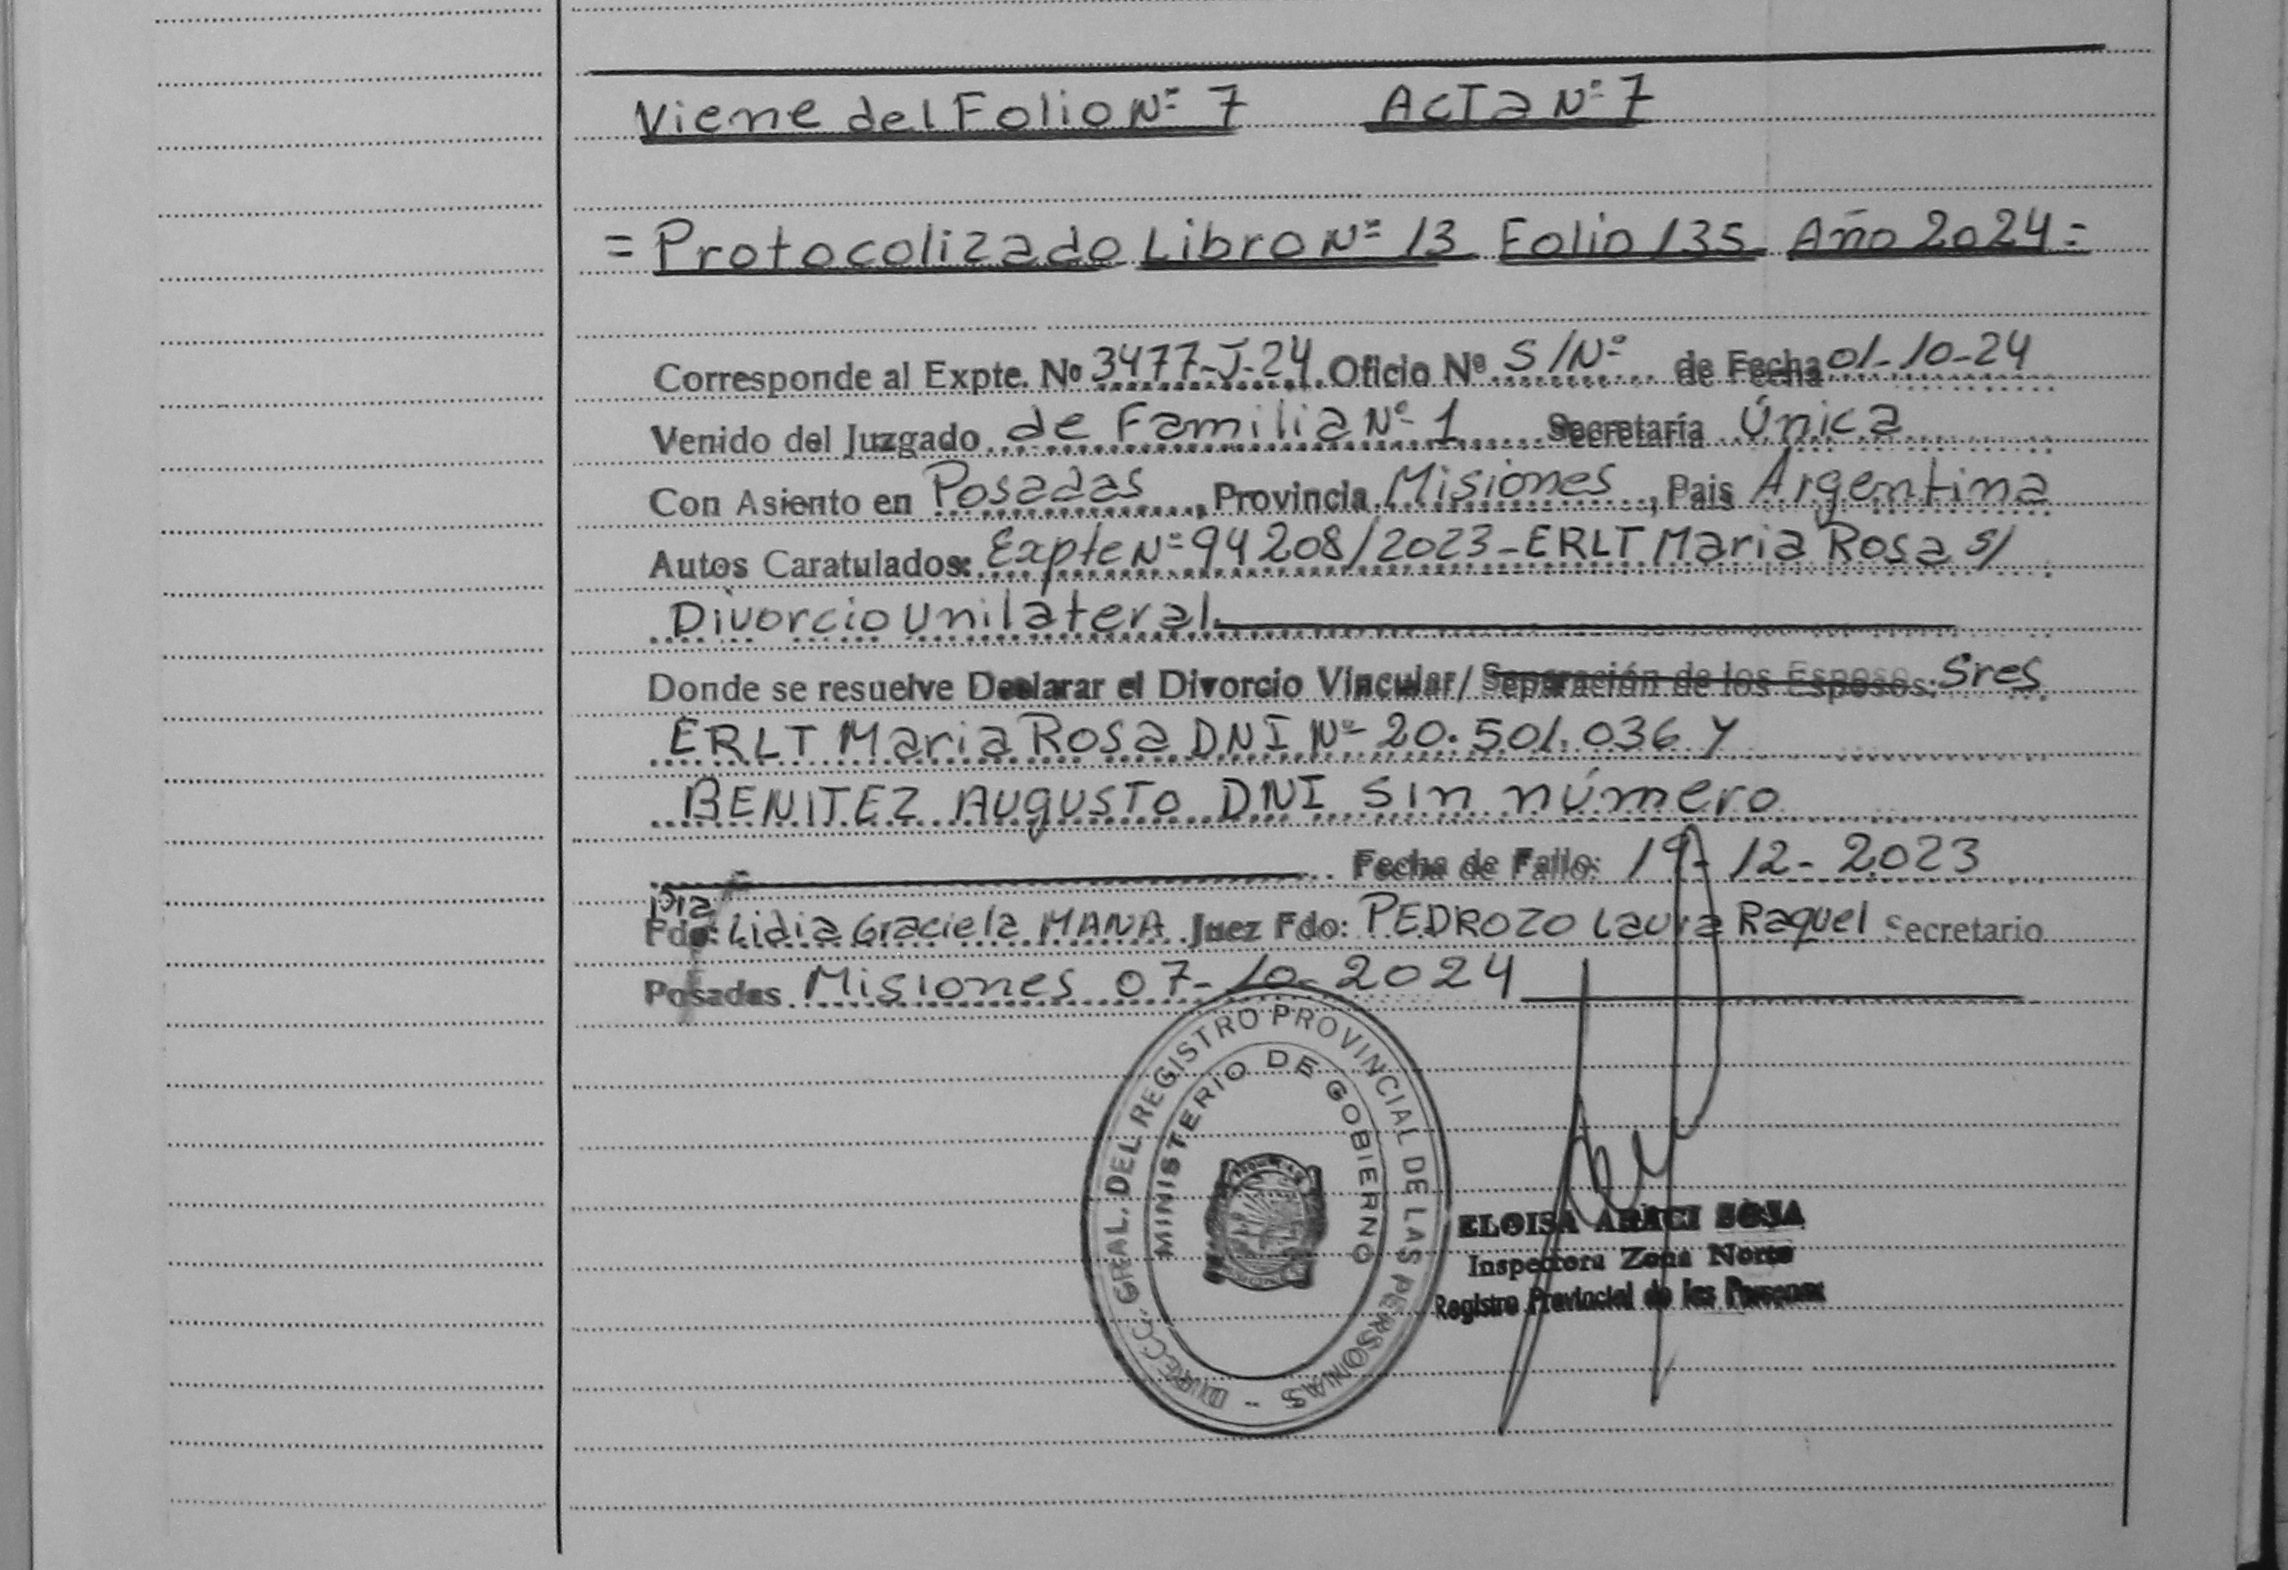 Viene del Folio Nº 7 Acta Nº 7
= Protocolizado Libro Nº 13 Folio 135 Año 2024 =
Corresponde al Expte. Nº 3477-J-24 Oficio Nº S/Nº de Fecha 01-10-24
Venido del Juzgado de Familia Nº 1 Secretaría Única
Con Asiento en Posadas, Provincia Misiones, Pais Argentina
Autos Caratulados: Expte Nº 94208/2023 - ERLT Maria Rosa s/
Divorcio Unilateral.
Donde se resuelve Declarar el Divorcio Vincular/ Separación de los Esposos: Sres
ERLT Maria Rosa DNI Nº 20.501.036 y
BENITEZ AUgUSTO DNI Sin número
Fecha de Fallo: 19-12-2023
Dra
Fdo: Lidia Graciela MANA Juez Fdo: PEDROZO Laura Raquel Secretario
Posadas Misiones 07-10-2024
DIRECC. GRAL. DEL REGISTRO PROVINCIAL DE LAS PERSONAS -
MINISTERIO DE GOBIERNO
ELOISA ARACI SOSA
Inspectora Zona Norte
Registro Provincial de las Personas